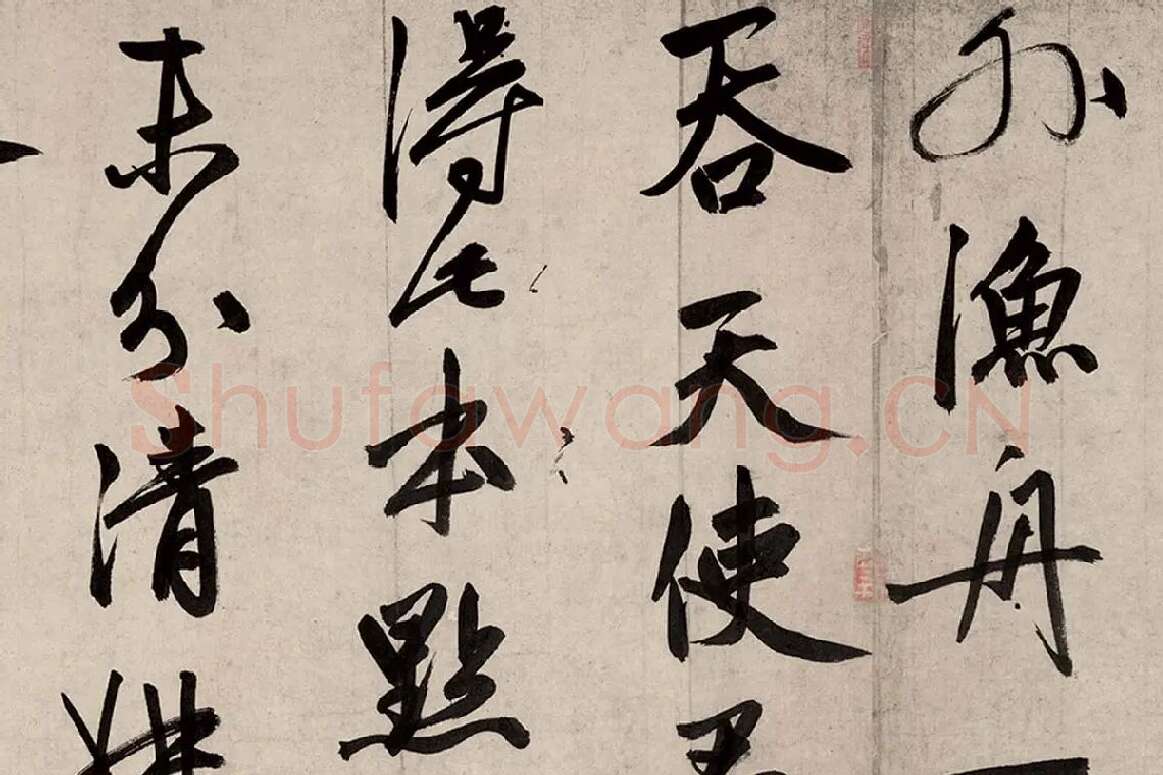 外漁舟
吞天使
得此本點
末分清妍
Shufawang.CN